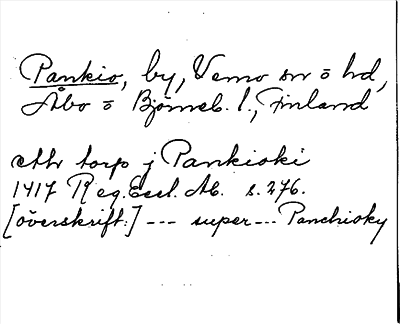 Pankio, by, Vemo sn o hd,
Åbo o Björneb. l., Finland
ett torp j Pankioki
1417 Reg. Eccl. Ab. s. 276.
[överskrift:] --- super --- Panchioky